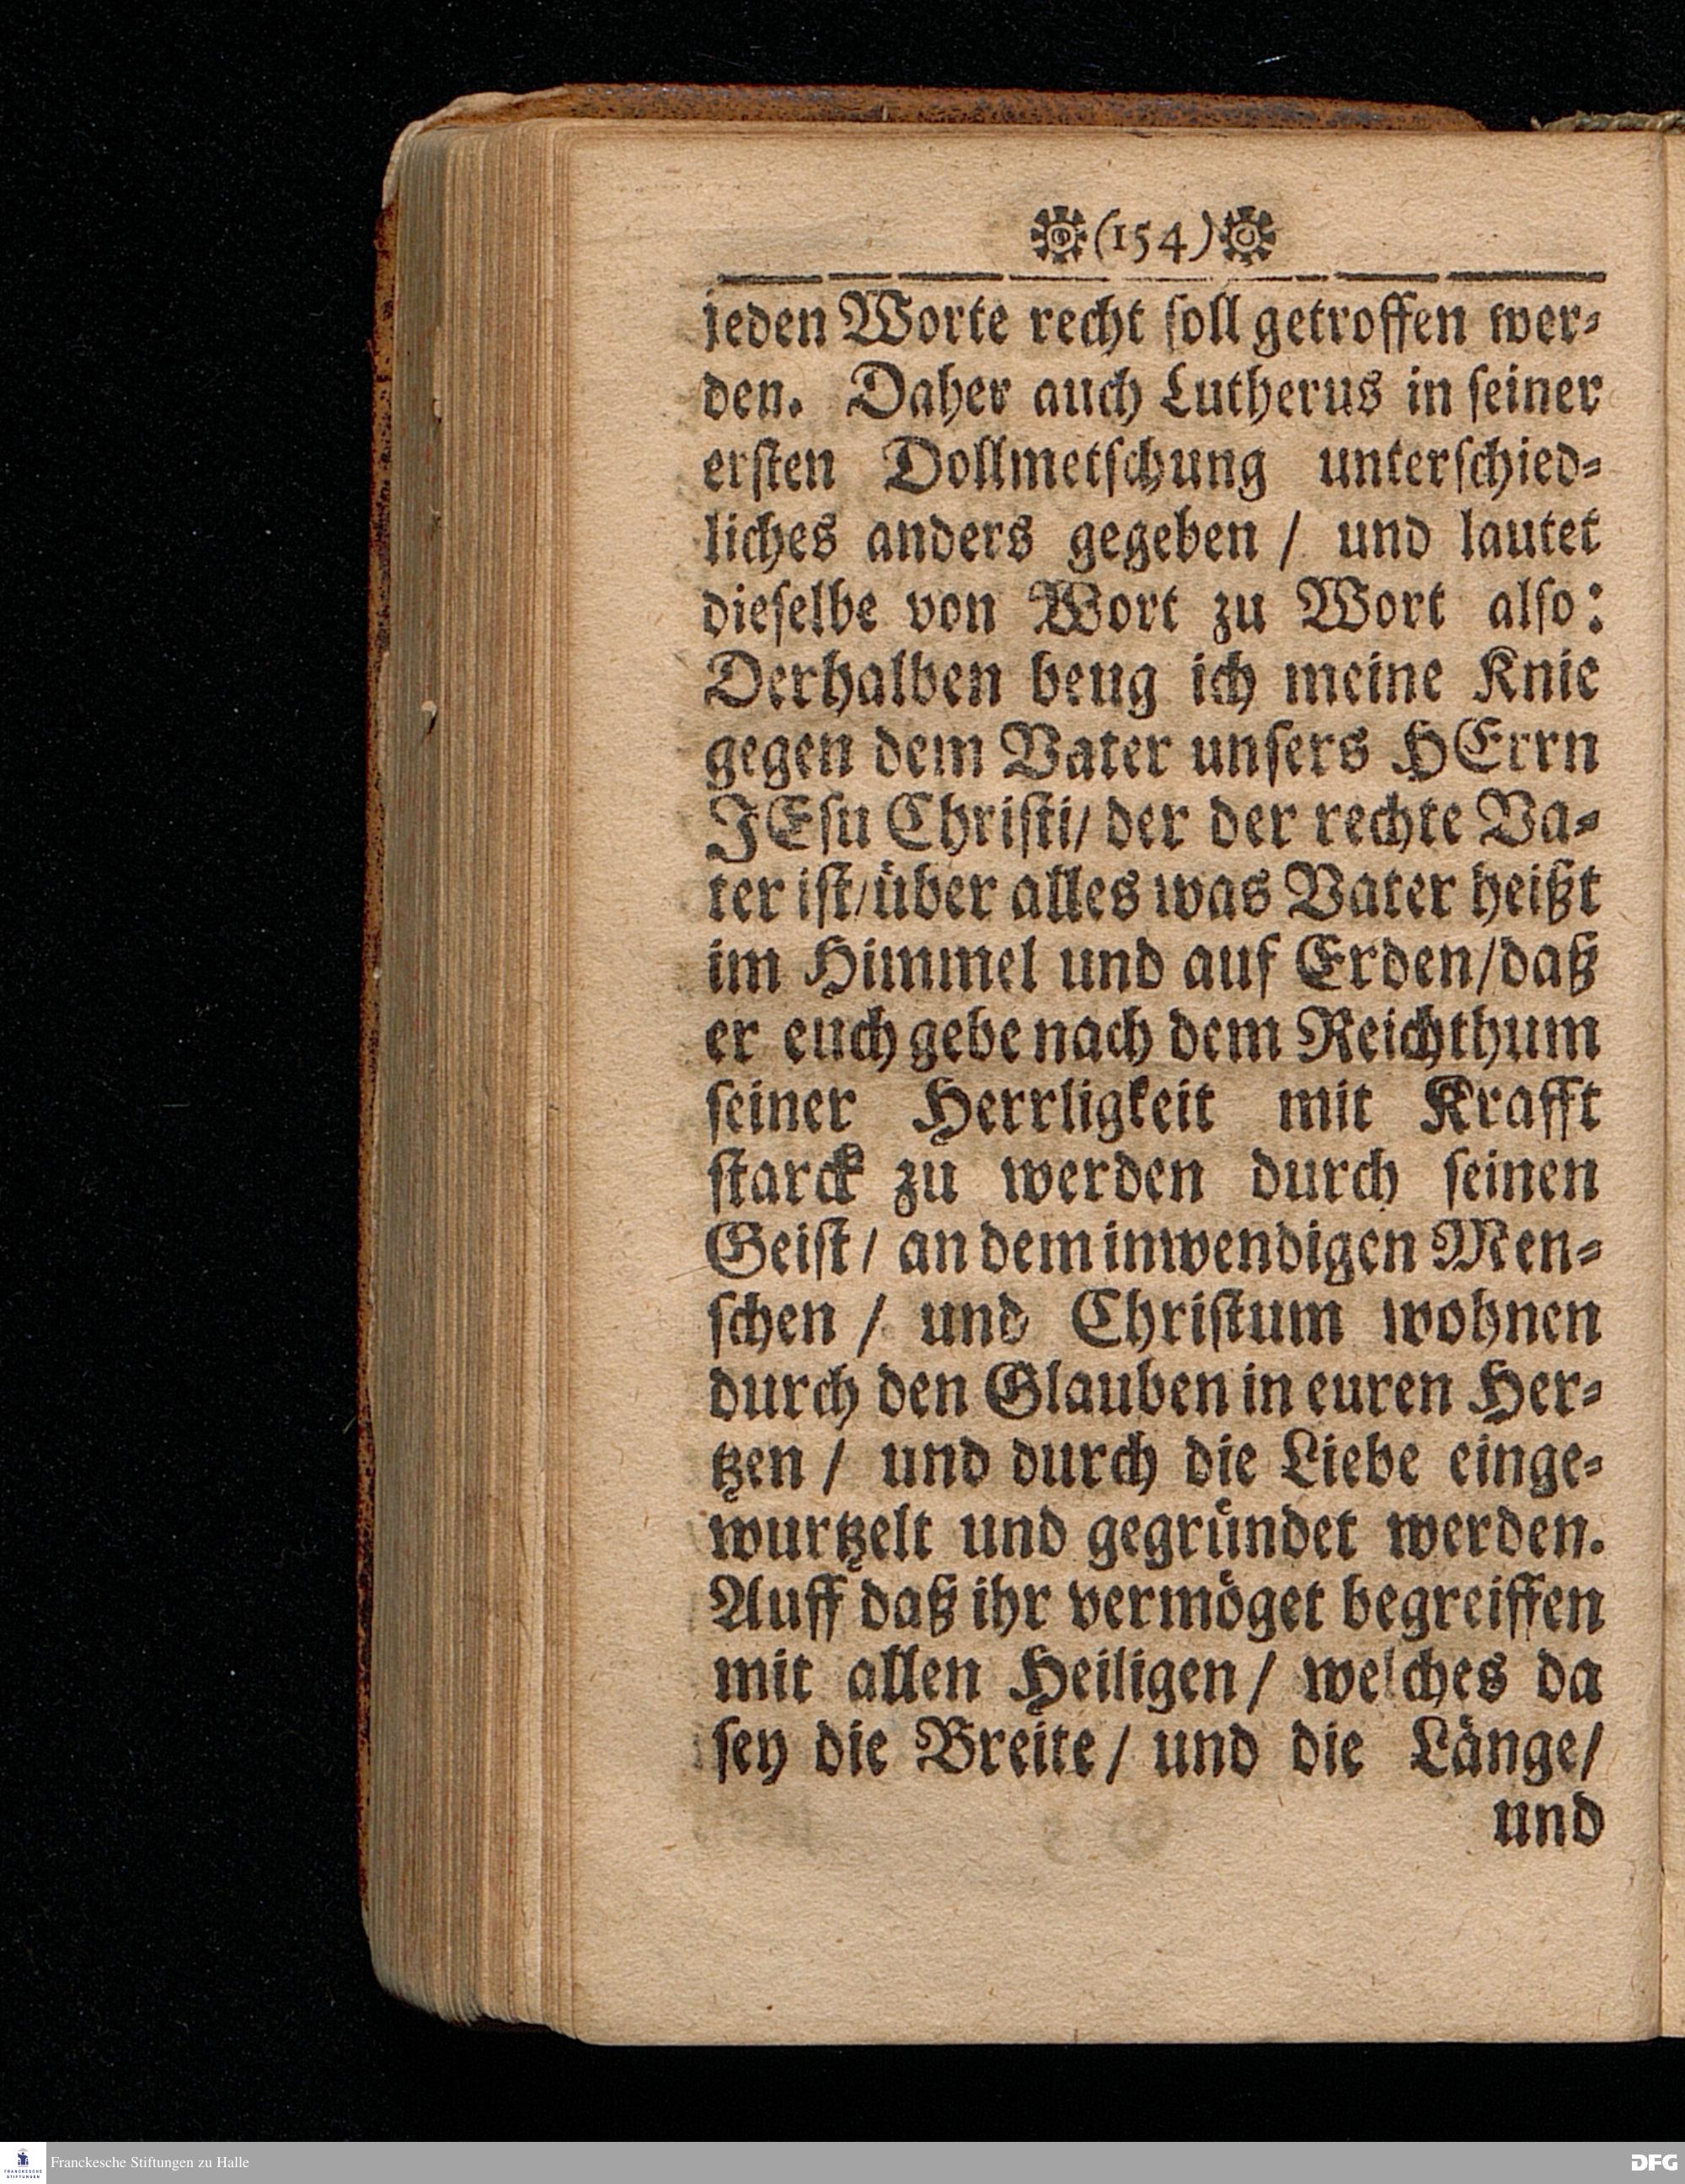 (154)
jeden Worte recht ſoll getroffen wer⸗
den. Daher auch Lutherus in ſeiner
erſten Dollmetſchung unterſchied⸗
liches anders gegeben / und lautet
dieſelbe von Wort zu Wort alſo:
Derhalben beug ich meine Knie
gegen dem Vater unſers HErrn
JEſu Chriſti / der der rechte Va⸗
ter iſt / uͤber alles was Vater heißt
im Himmel und auf Erden / daß
er euch gebe nach dem Reichthum
ſeiner Herrligkeit mit Krafft
ſtarck zu werden durch ſeinen
Geiſt / an dem inwendigen Men⸗
ſchen / und Chriſtum wohnen
durch den Glauben in euren Her⸗
tzen / und durch die Liebe einge⸗
wurtzelt und gegruͤndet werden.
Auff daß ihr vermoͤget begreiffen
mit allen Heiligen / welches da
ſey die Breite / und die Laͤnge /
und
Franckesche Stiftungen zu Halle
DFG